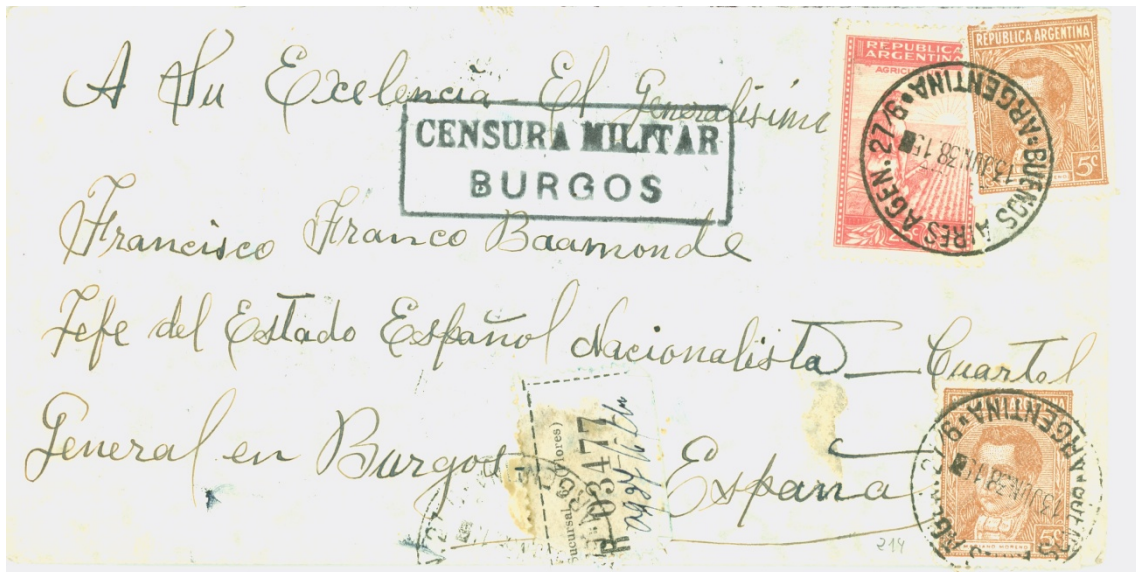 A Su Excelencia - El Generalisimo
CENSURA MILITAR
BURGOS
Francisco Franco Baamonde
Jefe del Estado Español Nacionalista - Cuartel
General en Burgos España
REPUBLICA
ARGENTINA
REPUBLICA ARGENTINA
5c
BUENOS AIRES AGEN. 27/6 ARGENTINA
13 JUN. 38 15
R 03477
214
ARGENTINA
13 JUN. 38 15
5c